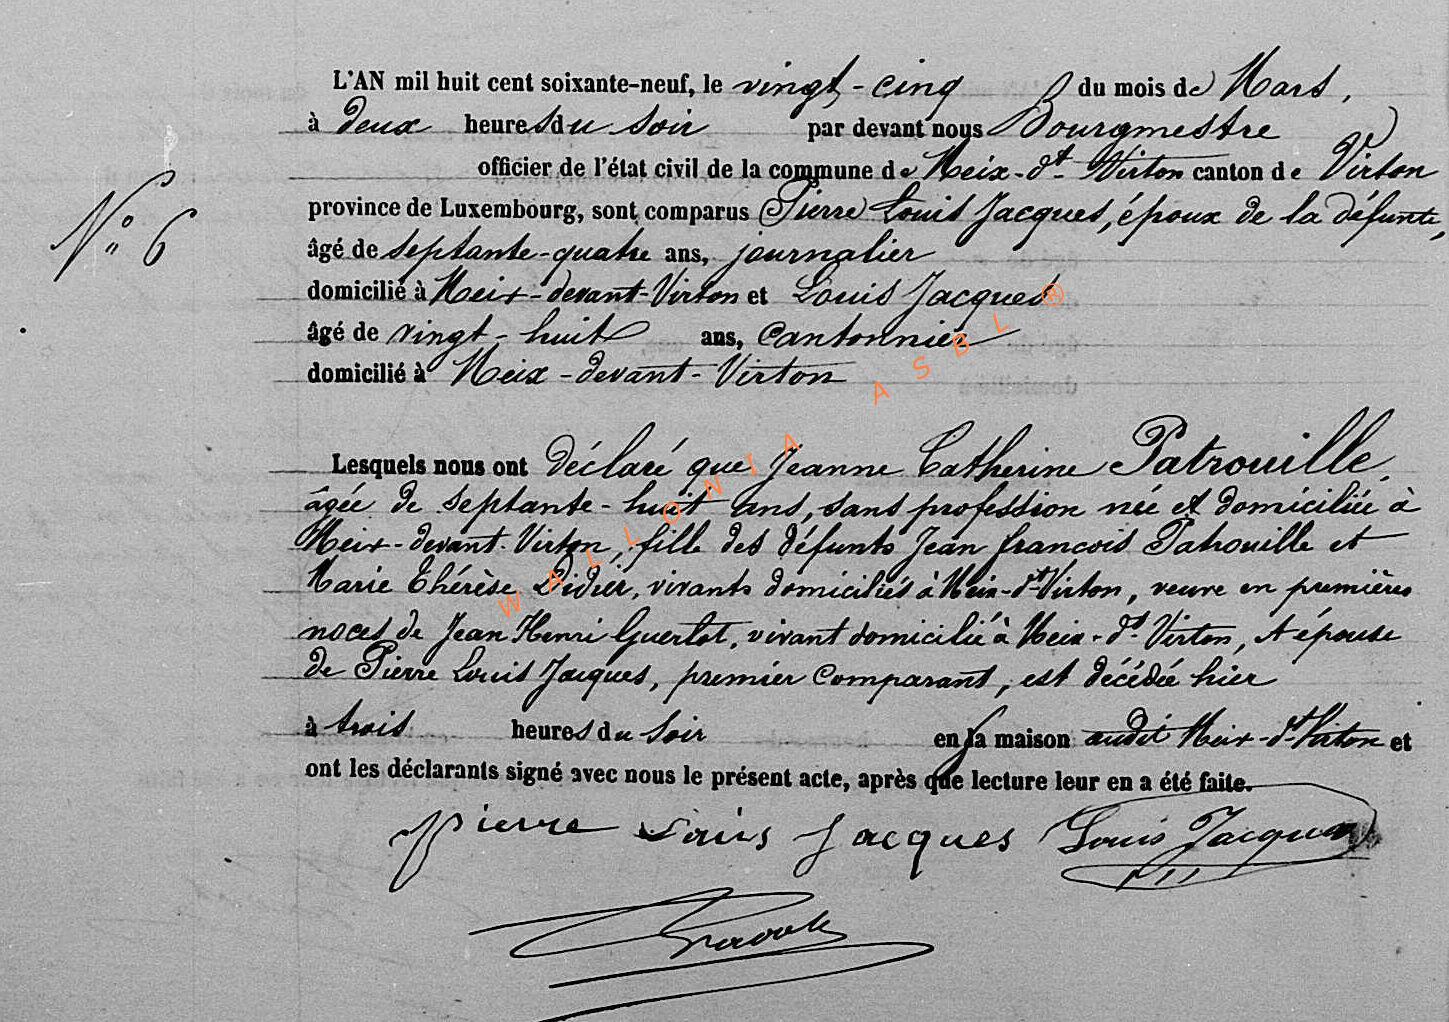 L'AN mil huit cent soixante-neuf, le vingt-cinq du mois de Mars,
à deux heures du soir par devant nous Bourgmestre
officier de l'état civil de la commune de Meix-dt-Virton canton de Virton
N° 6
province de Luxembourg, sont comparus Pierre Louis Jacques, époux de la défunte,
âgé de septante-quatre ans, journalier
domicilié à Meix-devant-Virton et Louis Jacques
âgé de vingt-huit ans, cantonnier
domicilié à Meix-devant-Virton
Lesquels nous ont déclaré que Jeanne Catherine Patrouille
âgée de septante-huit ans, sans profession née et domiciliée à
Meix-devant-Virton, fille des défunts Jean françois Patrouille et
Marie Thérèse Didier, vivants domiciliés à Meix-dt-Virton, veuve en premières
noces de Jean Henri Guerlot, vivant domicilié à Meix-dt-Virton, et épouse
de Pierre Louis Jacques, premier comparant, est décédée hier
à trois heures du soir en sa maison audit Meix-dt-Virton et
ont les déclarants signé avec nous le présent acte, après que lecture leur en a été faite.
Pierre Louis Jacques Louis Jacques
WALLONIA ASBL ®